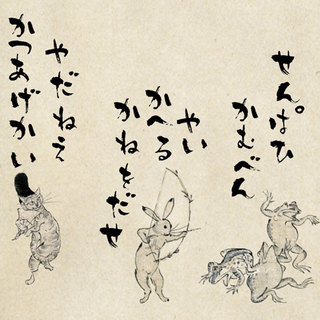 せんぱひ
かむべん
やい
かへる
かねをだせ
やだねえ
かつあげかい